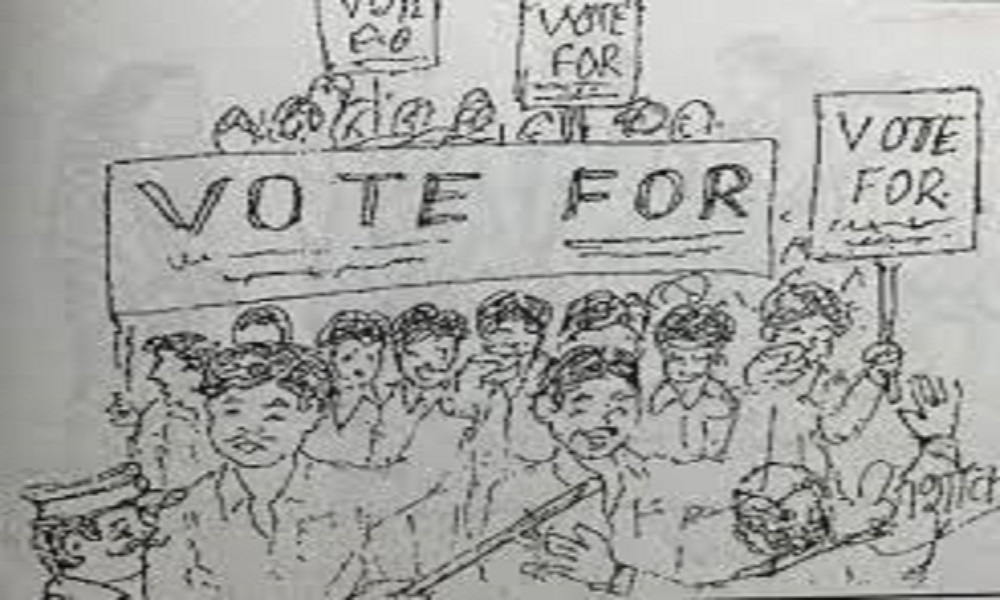 VOTE
FOR
VOTE
FOR
VOTE
FOR
VOTE FOR